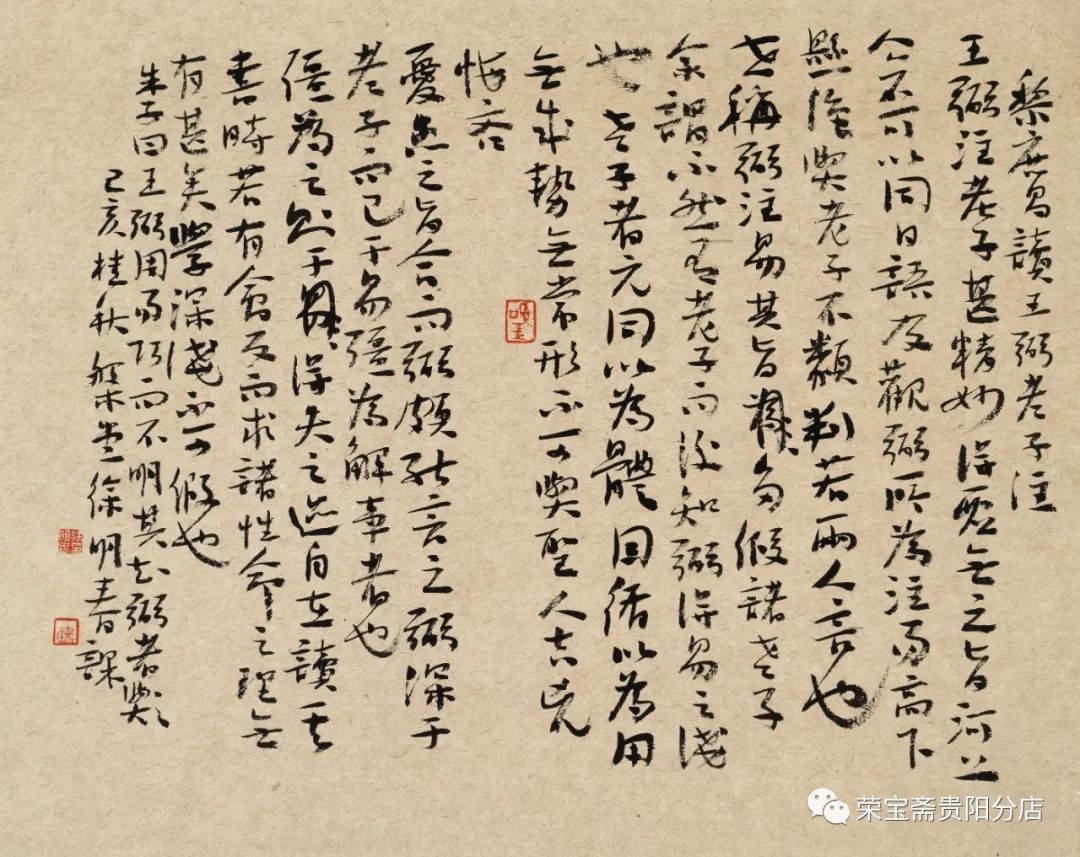 黎庶昌讀王弼老子注
王弼注老子甚精妙得虛無之旨河上
公不可以同日語及觀弼所為注易高下
懸隔與老子不類判若兩人言也
世稱弼注易其旨多假諸老子
余謂不然看老子而後知弼得易之淺
也老子者元同以為體因循以為用
無成勢無常形不可與聖人吉凶
悔吝
憂患之旨合而弼頗能言之弼深于
老子而已于易彊為解事者也
彊為之則于得失之迹自在讀其
書時若有會反而求諸性命之理無
有甚矣學深淺不可假也
朱子曰王弼周易巧而不明其知弼者歟
己亥桂秋堂徐明春課
荣宝斋贵阳分店